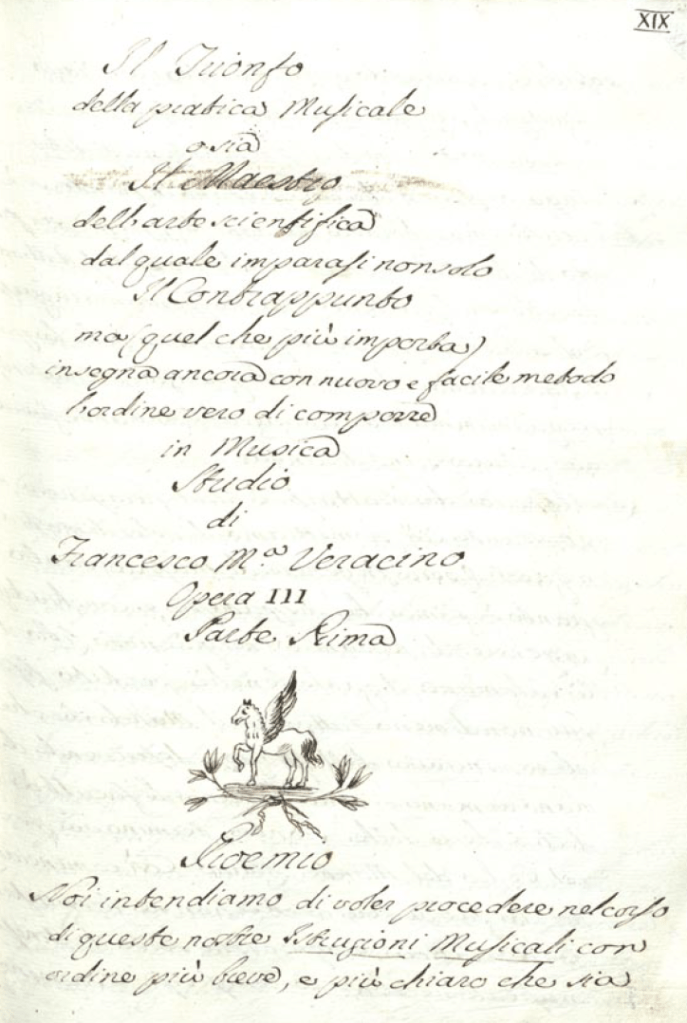 XIX
Il Trionfo
della pratica Musicale
o sia
Il Maestro
dell'arte scientifica
dal quale imparasi non solo
Il Contrappunto
ma (quel che più importa)
insegna ancora con nuovo e facile metodo
l'ordine vero di comporre
in Musica
Studio
di
Francesco M.ª Veracino
Opera III
Parte Prima
Proemio
Noi intendiamo di voler procedere nel corso
di queste nostre Istruzioni Musicali con
ordine più breve, e più chiaro che sia